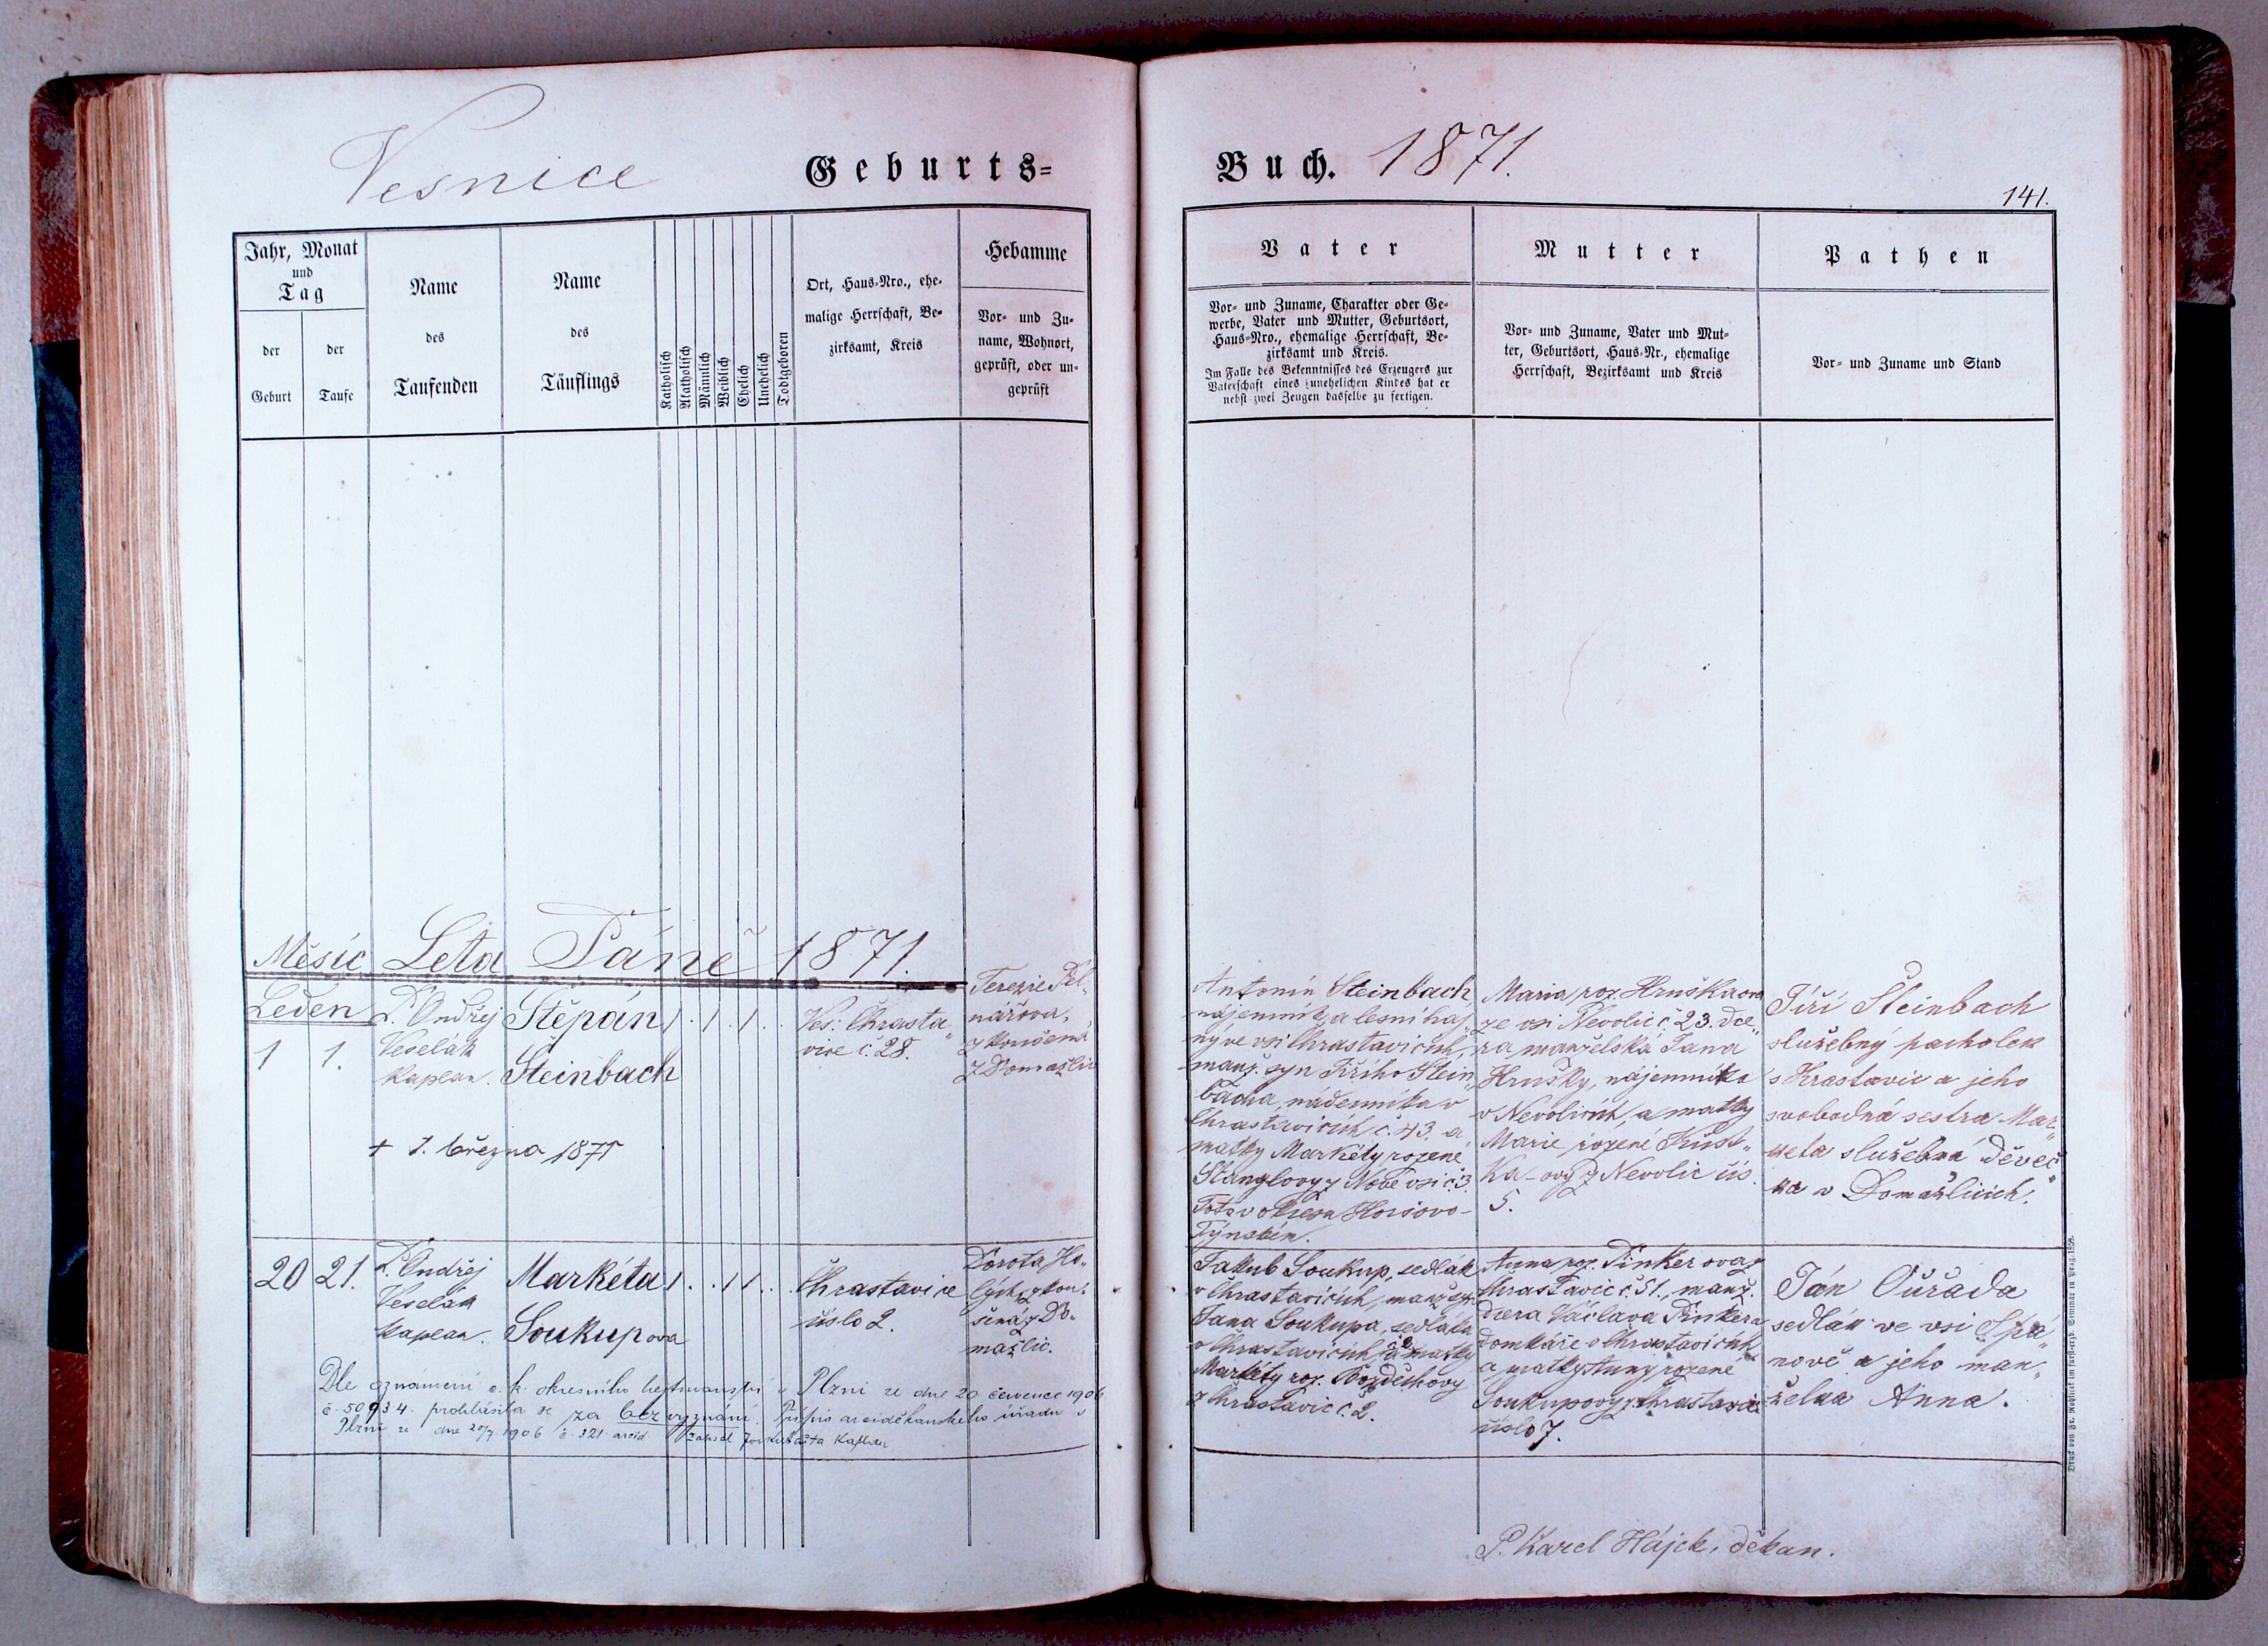 Vesnice
Geburts=
Buch. 1871.
141.
Jahr, Monat
und
Tag
der
Geburt
der
Taufe
Name
des
Taufenden
Name
des
Täuflings
Katholisch
Akatholisch
Männlich
Weiblich
Ehelich
Unehelich
Todtgeboren
Ort, Haus-Nro., ehe-
malige Herrschaft, Be-
zirksamt, Kreis
Hebamme
Vor- und Zu-
name, Wohnort,
geprüft, oder un-
geprüft
Vater
Vor- und Zuname, Charakter oder Ge-
werbe, Vater und Mutter, Geburtsort,
Haus-Nro., ehemalige Herrschaft, Be-
zirksamt und Kreis.
Im Falle des Bekenntnisses des Erzeugers zur
Vaterschaft eines unehelichen Kindes hat er
nebst zwei Zeugen dasselbe zu fertigen.
Mutter
Vor- und Zuname, Vater und Mut-
ter, Geburtsort, Haus-Nr., ehemalige
Herrschaft, Bezirksamt und Kreis
Pathen
Vor- und Zuname und Stand
Měsíc Leta Páně 1871.
Leden
1 1.
P. Ondřej
Veselák
kaplan.
Štěpán
Steinbach
1 . 1 . 1 . .
Ves: Chrasta„
vice č. 28.
Terezie
nářova,
zkoušená
z Domažlic
+ 7. března 1871
Antonín Steinbach
nájemník a lesní haj„
ný ve vsi Chrastavicích,
manž. syn Jiřího Stein„
bacha, nádenníka v
Chrastavicích č. 43. a
matky Markéty rozené
Stanglovy z Nové vsi č. 3.
Toto v okresu Horšovo-
Týnském.
Maria roz. Hruškova
ze vsi Nevolic č. 23. dce„
ra manželská Jana
Hrušky, nájemníka
v Nevolicích, a matky
Marie rozené
z Nevolic čís.
5.
Jiří Steinbach
služebný pacholek
s Hrastavic a jeho
svobodná sestra Mar„
keta služebná děveč„
ka v Domažlicích.
20 21.
P. Ondřej
Veselák
kaplan.
Markéta
Soukupova
1 . . 1 1 . .
Chrastavice
číslo 2.
Dorota Ho„
lých, zkou„
šená z Do„
mažlic.
Jakub Soukup, sedlák
v Chrastavicích, manž. syn
Jana Soukupa, sedláka
v Chrastavicích č. 2 a matky
Markéty roz. Bozděchovy
z Chrastavic č. 2.
Anna roz. Pinkerova z
Chrastavic č. 51., manž.
dcera Václava Pinkera
domkáře v Chrastavicích
a matky Anny rozené
Soukupovy z Chrastavic
číslo 7.
Ján Ouřada
sedlák ve vsi Spá„
nově a jeho man„
želka Anna.
Dle oznámení c. k. okresního hejtmanství v Plzni ze dne 20. července 1906
č. 50934. prohlásila se za bez vyznání. Přípis arciděkanského úřadu v
Plzni ze dne 20/7 1906 č. 321 arcid. kaplan
P. Karel Hájek, děkan.